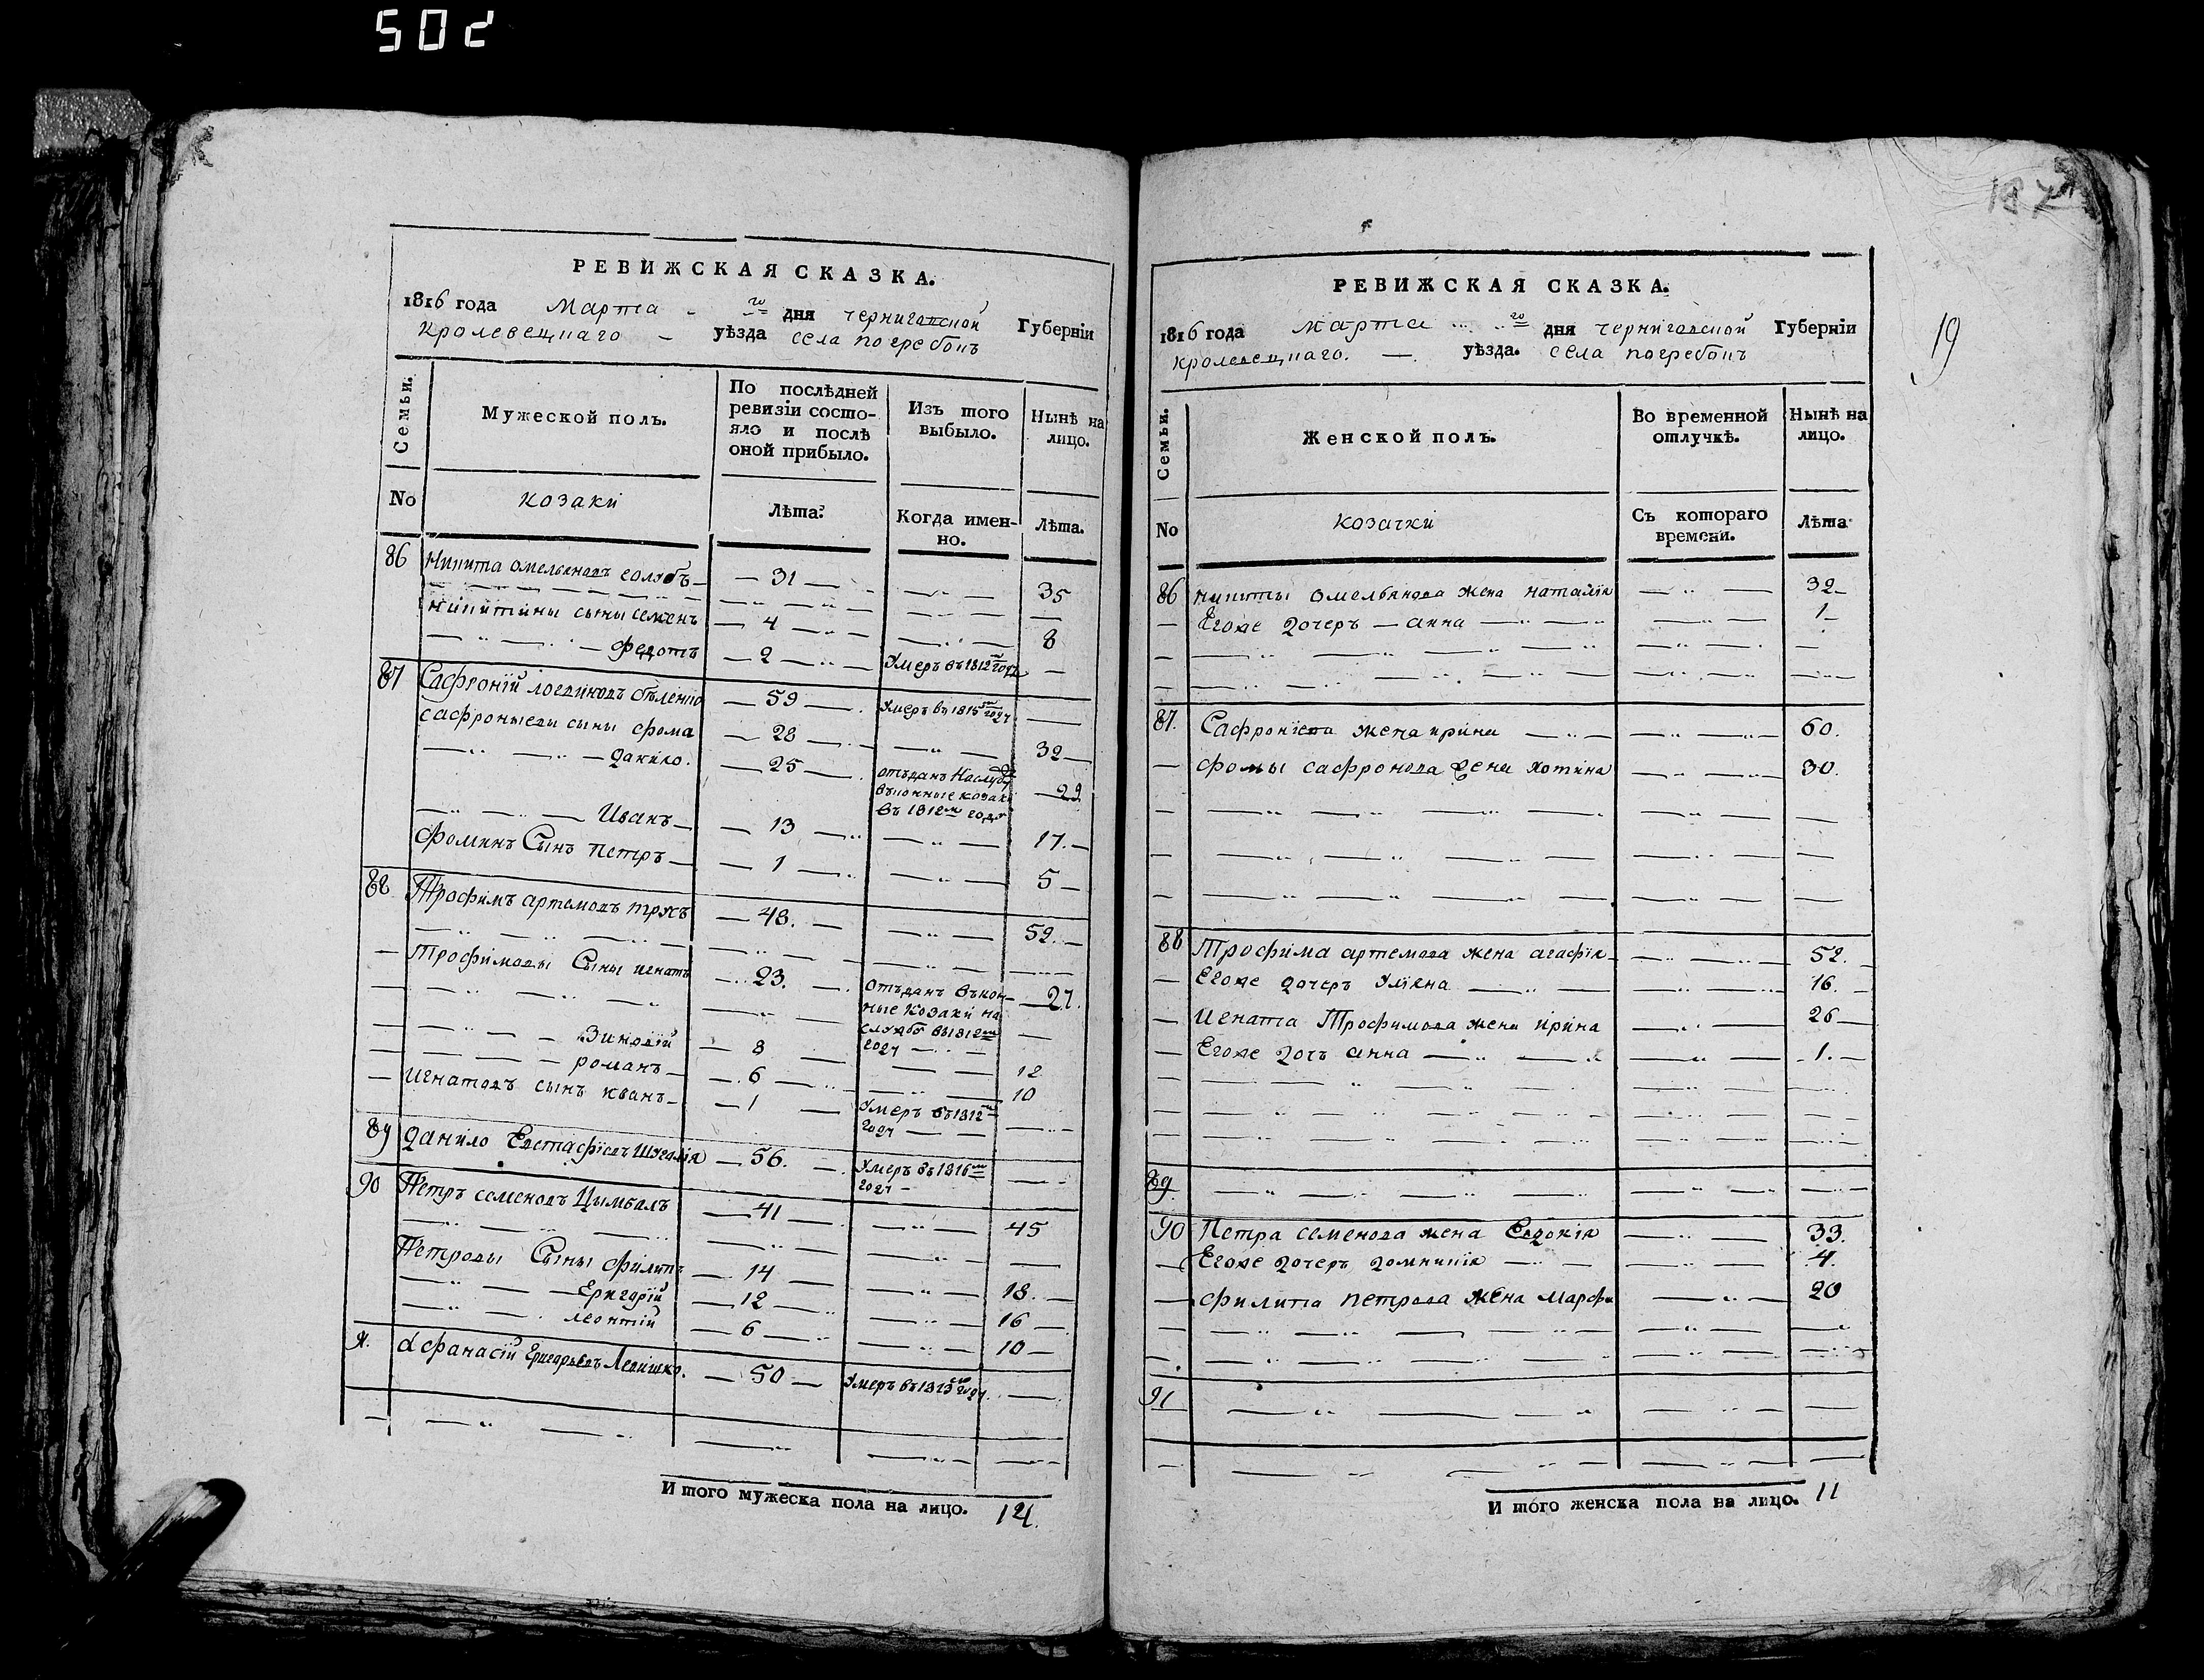 502
РЕВИЖСКАЯ СКАЗКА.
1816 года Марта го дня черниговской Губерніи
кролевецкаго уѣзда села погребокъ
Семьи.
Мужеской полъ.
По послѣдней ревизіи состо-
яло и послѣ оной прибыло.
Изъ того выбыло.
Нынѣ на лицо.
No
козаки
Лѣта.
Когда имен-
но.
Лѣта.
86 Никита омельяновъ голубъ 31 35
никитины сыны семенъ 4 8
федотъ 2 Умеръ въ 1812 м году
87 Сафроній логвиновъ 59 Умеръ въ 1815 м году
сафрониеви сыны фома 28 32
данило. 25 отъданъ На службу 29
въ конные козаки
въ 1812 м году
Иванъ 13 17.
фоминъ Сынъ петръ 1 5
88. Трофимъ артемовъ 48. 52.
Трофимовы Сыны игнатъ 23. отъданъ въ кон- 27.
ные козаки на
службу въ 1812 м
году
Зиновій 8 12
романъ 6 10
Игнатовъ сынъ иванъ 1 Умеръ въ 1812 м
году
89 данило Евстафіевъ 56. Умеръ въ 1816 м
году
90 Петръ семеновъ Цымбалъ 41 45
Петровы Сыны филипъ 14 18.
Григорій 12 16
леонтій 6 10
91. афанасій Григорьевъ Левишко. 50 Умеръ въ 1813 году.
И того мужеска пола на лицо. 14.
187
19
РЕВИЖСКАЯ СКАЗКА.
1816 года марта го дня черниговской Губерніи
кролевецкаго. уѣзда. села погребокъ
Семьи.
Женской полъ.
Во временной отлучкѣ.
Нынѣ на лицо.
No
козачки
Съ котораго времени.
Лѣта
86 никиты омельянова жена наталія 32
Егоже дочеръ анна 1
87. Сафроніева жена ирина 60.
фомы сафронова жена хотина 30.
88 Трофима артемова жена агафія 52.
Егоже дочеръ уліяна 16.
Игната Трофимова жена ирина 26
Егоже дочъ анна 1.
89.
90 Петра семенова жена Евдокія 33.
Егоже дочеръ домникія 4.
филипа петрова жена марфа 20
91
И того женска пола на лицо. 11